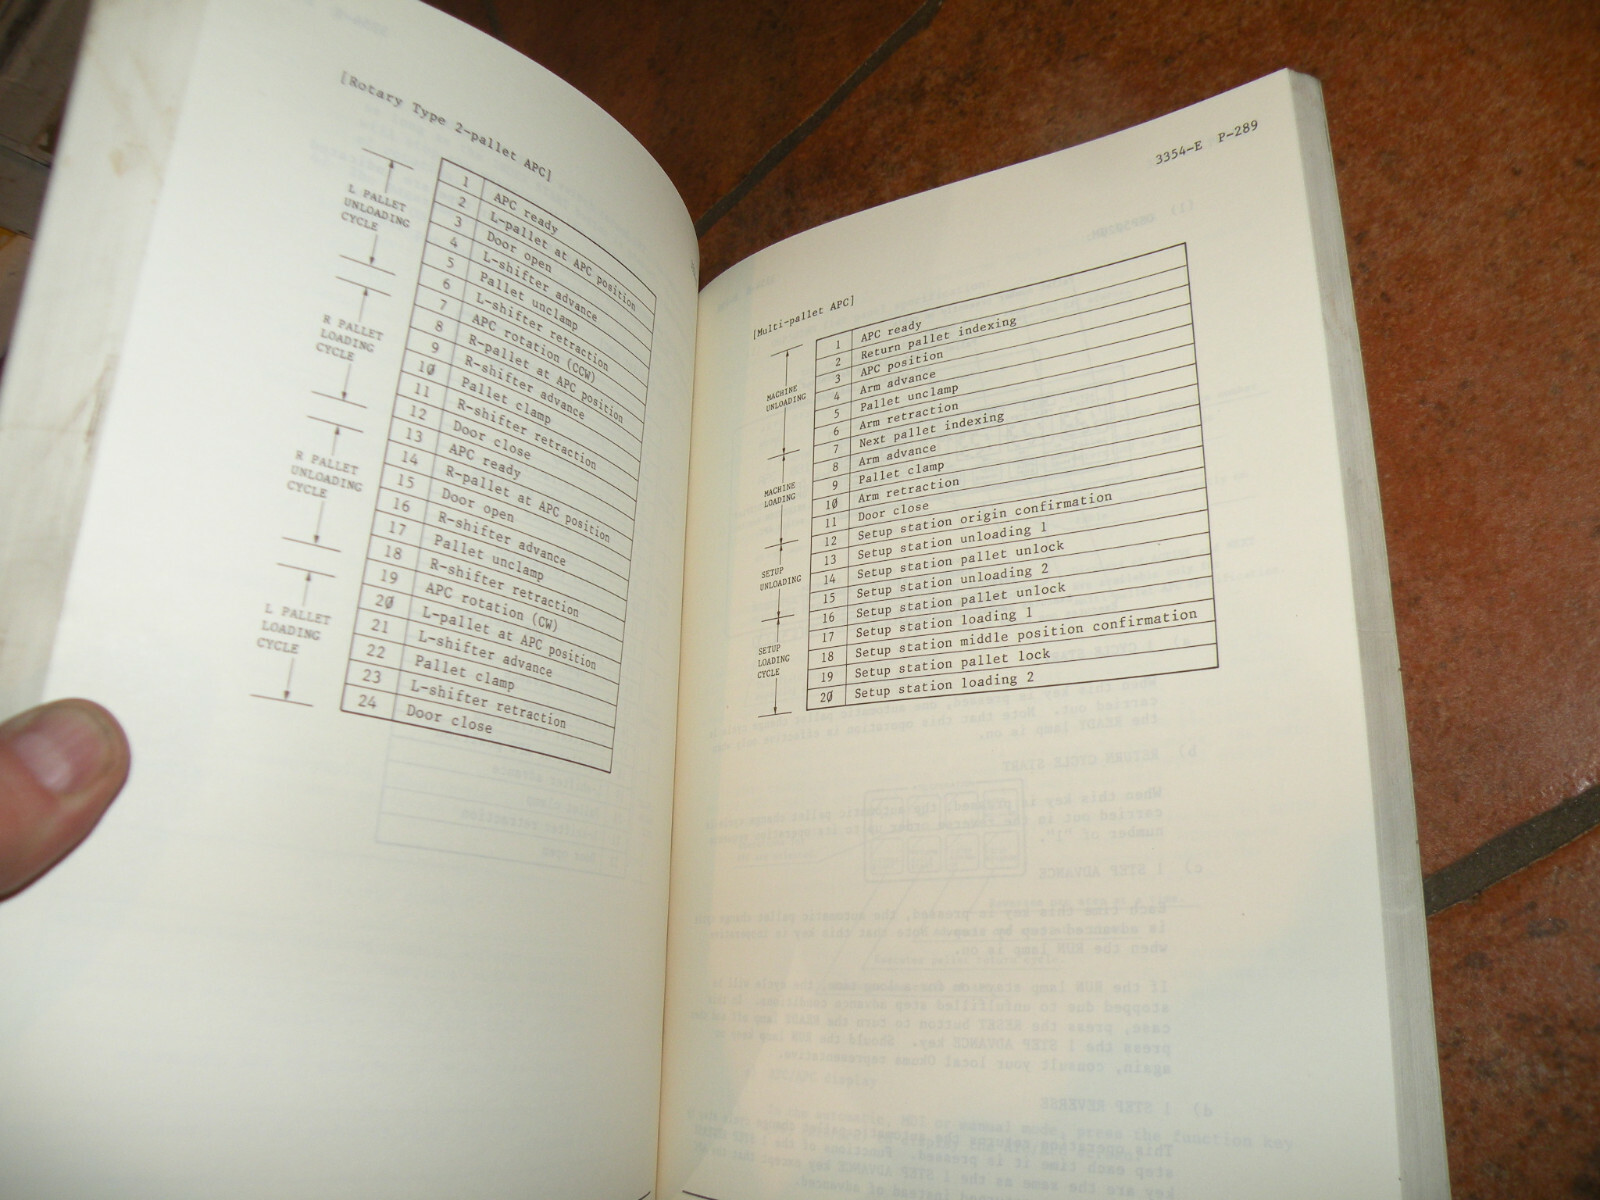 [Rotary Type 2-pallet APC]
L PALLET
UNLOADING
CYCLE
R PALLET
LOADING
CYCLE
R PALLET
UNLOADING
CYCLE
L PALLET
LOADING
CYCLE
1 APC ready
2 L-pallet at APC position
3 Door open
4 L-shifter advance
5 Pallet unclamp
6 L-shifter retraction
7 APC rotation (CCW)
8 R-pallet at APC position
9 R-shifter advance
10 Pallet clamp
11 R-shifter retraction
12 Door close
13 APC ready
14 R-pallet at APC position
15 Door open
16 R-shifter advance
17 Pallet unclamp
18 R-shifter retraction
19 APC rotation (CW)
20 L-pallet at APC position
21 L-shifter advance
22 Pallet clamp
23 L-shifter retraction
24 Door close
3354-E P-289
[Multi-pallet APC]
MACHINE
UNLOADING
MACHINE
LOADING
SETUP
UNLOADING
SETUP
LOADING
CYCLE
1 APC ready
2 Return pallet indexing
3 APC position
4 Arm advance
5 Pallet unclamp
6 Arm retraction
7 Next pallet indexing
8 Arm advance
9 Pallet clamp
10 Arm retraction
11 Door close
12 Setup station origin confirmation
13 Setup station unloading 1
14 Setup station pallet unlock
15 Setup station unloading 2
16 Setup station pallet unlock
17 Setup station loading 1
18 Setup station middle position confirmation
19 Setup station pallet lock
20 Setup station loading 2